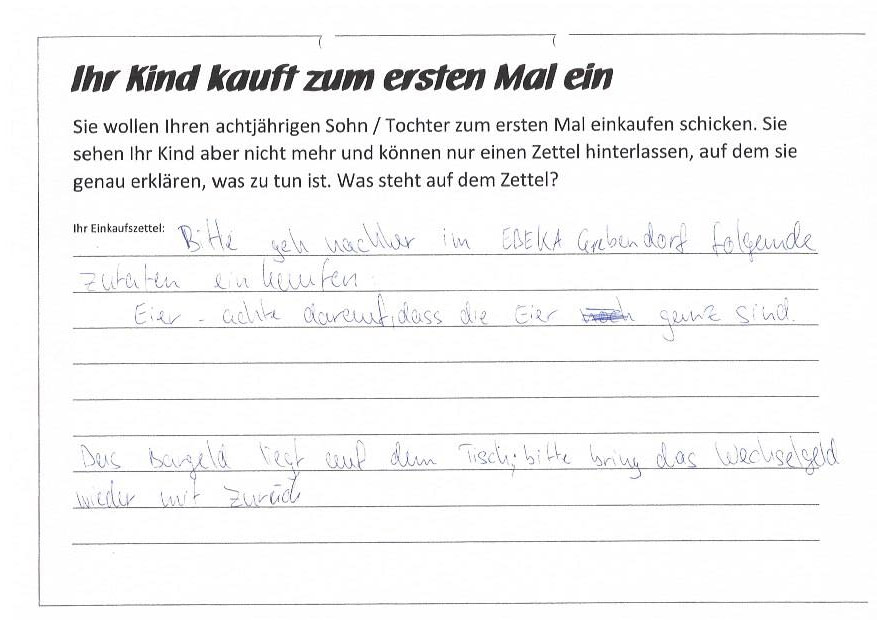 Ihr Kind kauft zum ersten Mal ein
Sie wollen Ihren achtjährigen Sohn / Tochter zum ersten Mal einkaufen schicken. Sie
sehen Ihr Kind aber nicht mehr und können nur einen Zettel hinterlassen, auf dem sie
genau erklären, was zu tun ist. Was steht auf dem Zettel?
Ihr Einkaufszettel: Bitte geh nachher im EDEKA Grebendorf folgende
Zutaten einkaufen
Eier - achte darauf, dass die Eier ganz sind.
Das Bargeld liegt auf dem Tisch; bitte bring das Wechselgeld
wieder mit zurück